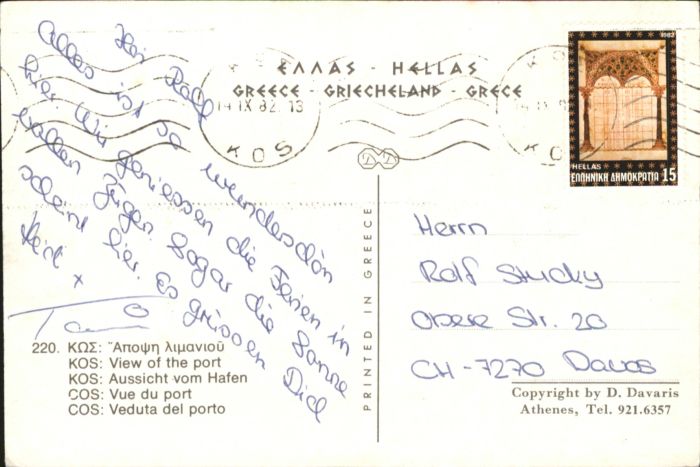 Hoi Ralf
Alles ist so wunderschön
hier. Wir geniessen die Ferien in
vollen Zügen. Sogar die Sonne
scheint hier. Es grüssen Dich
Heidi x
ΕΛΛΑΣ - HELLAS
GREECE - GRIECHELAND - GRECE
14 IX 82. 13
ΚΩΣ
KOS
1982
HELLAS
ΕΛΛΗΝΙΚΗ ΔΗΜΟΚΡΑΤΙΑ 15
PRINTED IN GREECE
Herrn
Ralf Stucky
Obere Str. 20
CH-7270 Davos
220. ΚΩΣ: Ἄποψη λιμανιοῦ
KOS: View of the port
KOS: Aussicht vom Hafen
COS: Vue du port
COS: Veduta del porto
Copyright by D. Davaris
Athenes, Tel. 921.6357